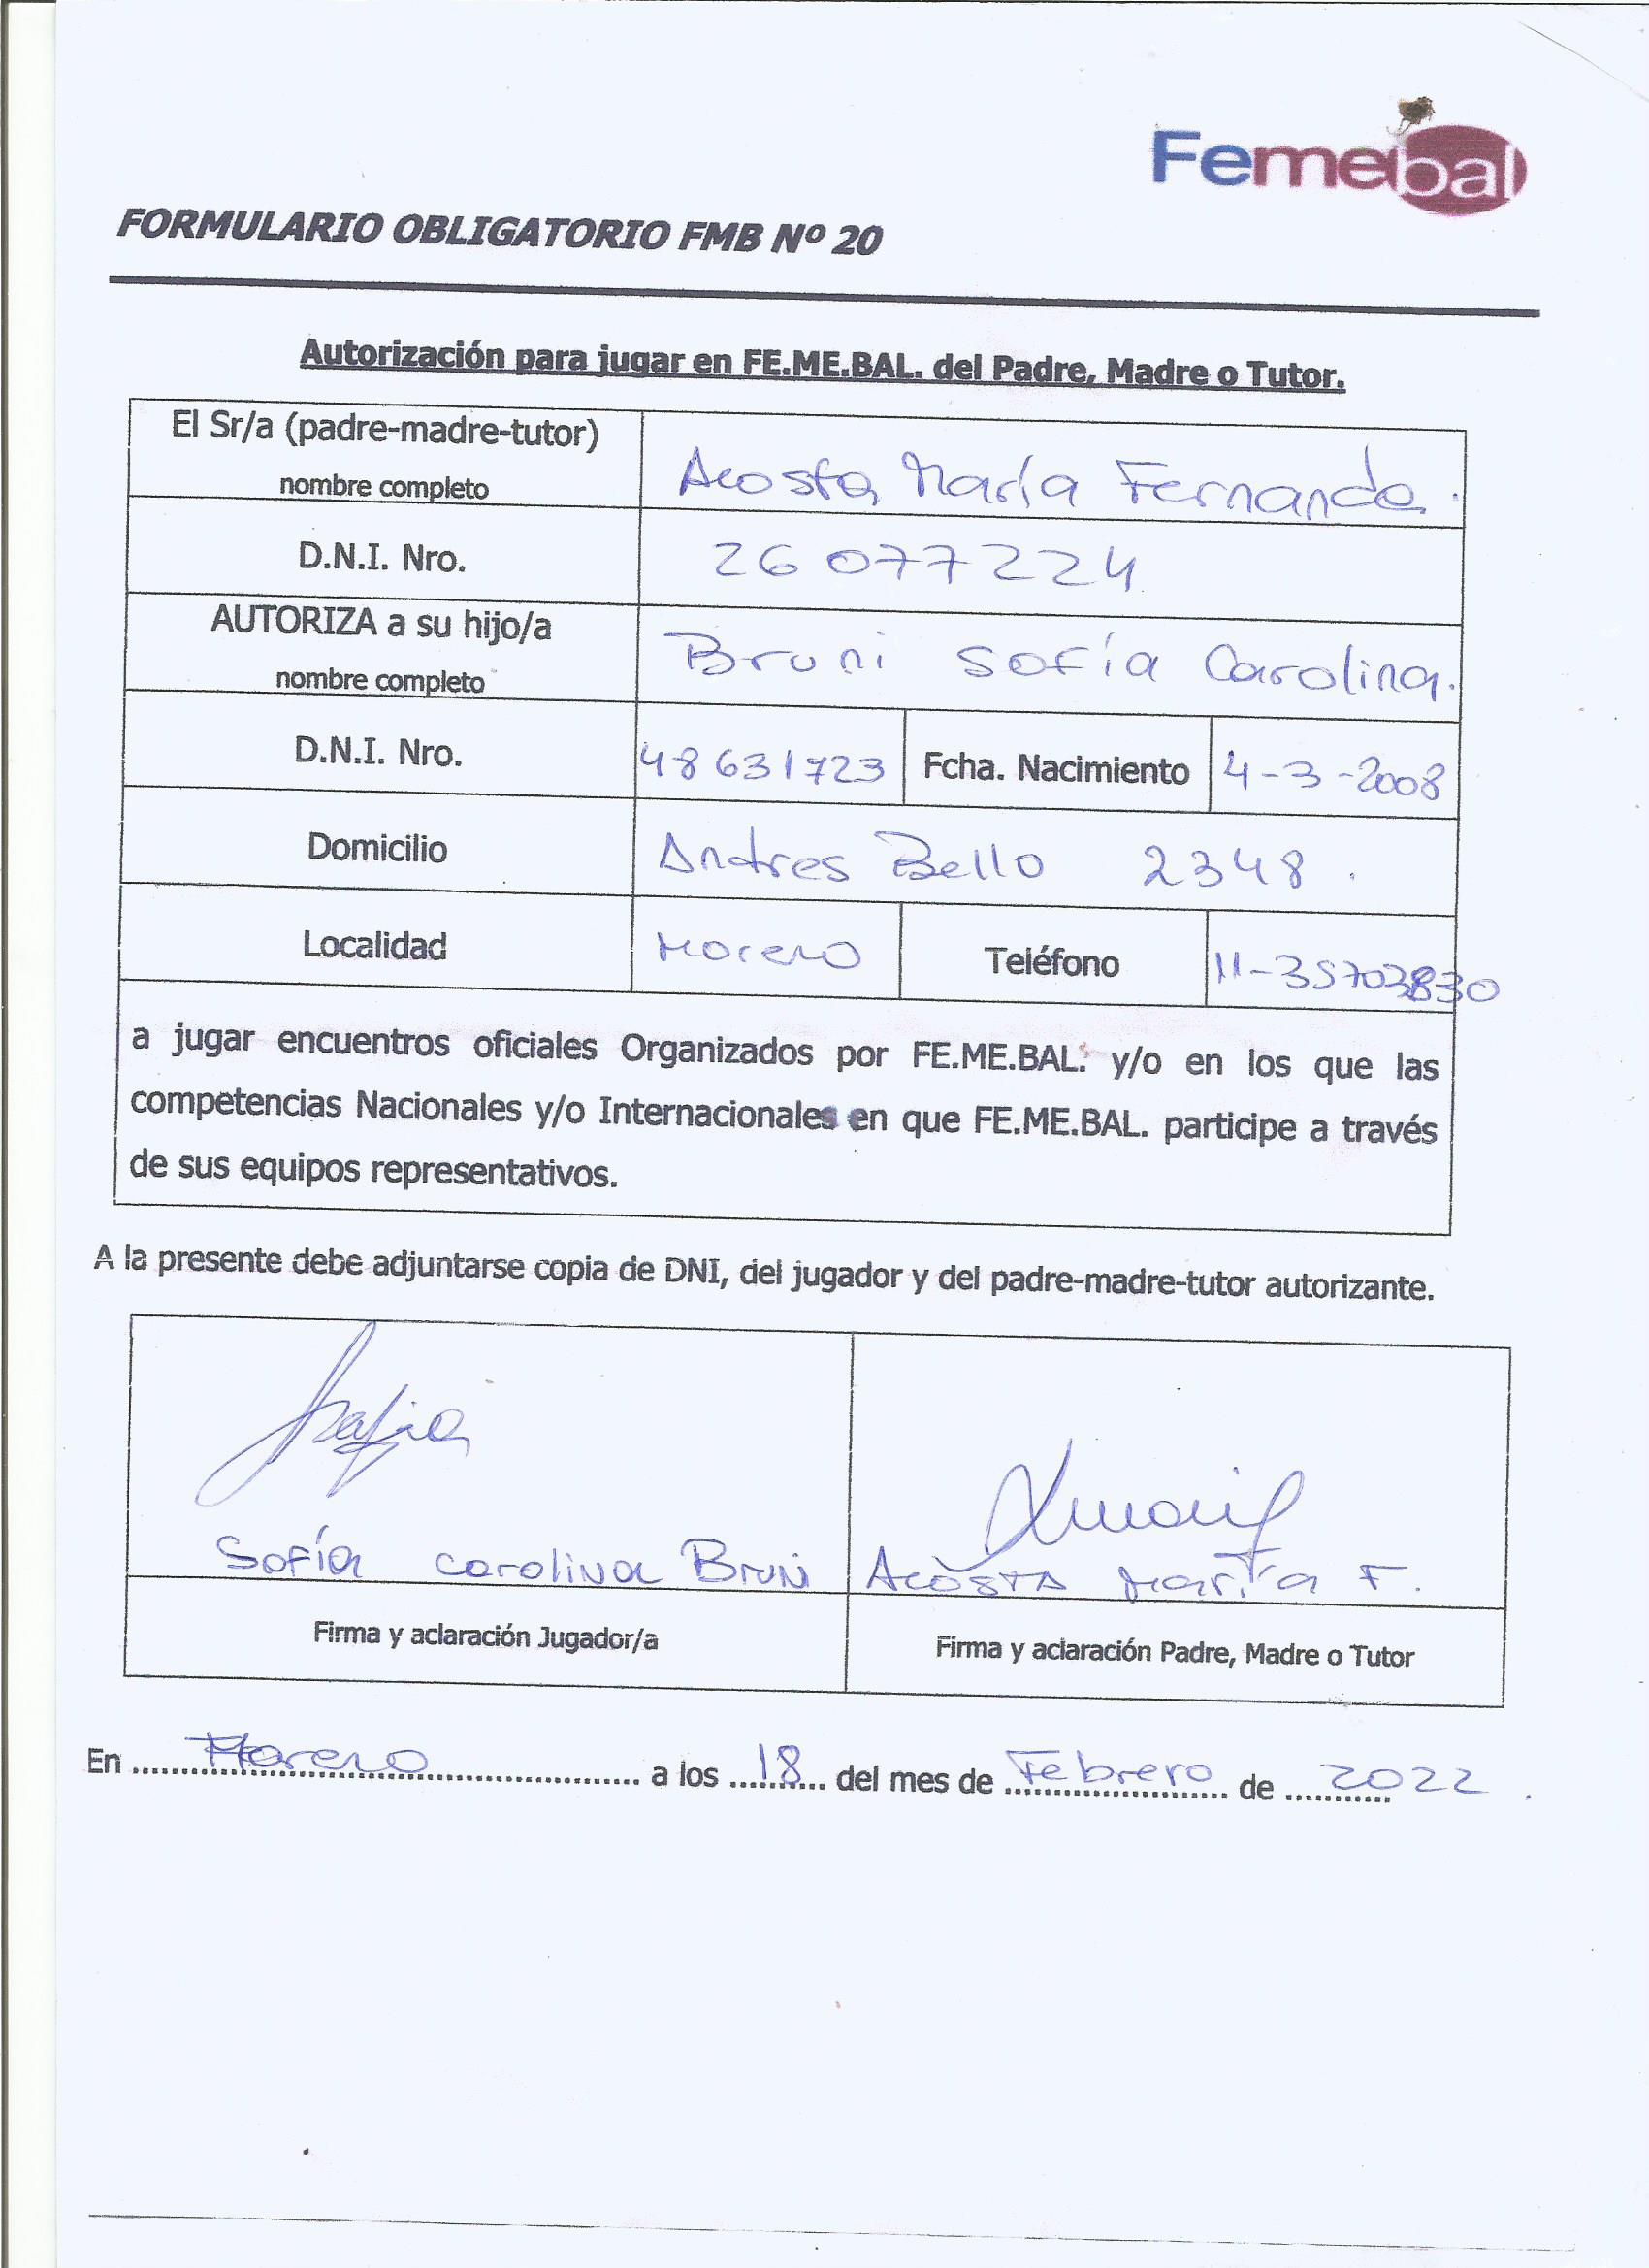 Femebal
FORMULARIO OBLIGATORIO FMB Nº 20
Autorización para jugar en FE.ME.BAL. del Padre, Madre o Tutor.
El Sr/a (padre-madre-tutor)
nombre completo
Acosta María Fernanda.
D.N.I. Nro.
26 077224
AUTORIZA a su hijo/a
nombre completo
Bruni Sofía Carolina.
D.N.I. Nro.
48631723
Fcha. Nacimiento
4-3-2008
Domicilio
Andres Bello 2348.
Localidad
Moreno
Teléfono
a jugar encuentros oficiales Organizados por FE.ME.BAL. y/o en los que las
competencias Nacionales y/o Internacionales en que FE.ME.BAL. participe a través
de sus equipos representativos.
A la presente debe adjuntarse copia de DNI, del jugador y del padre-madre-tutor autorizante.
Sofía Carolina Bruni
Acosta María F.
Firma y aclaración Jugador/a
Firma y aclaración Padre, Madre o Tutor
En Moreno a los 18 del mes de Febrero de 2022.